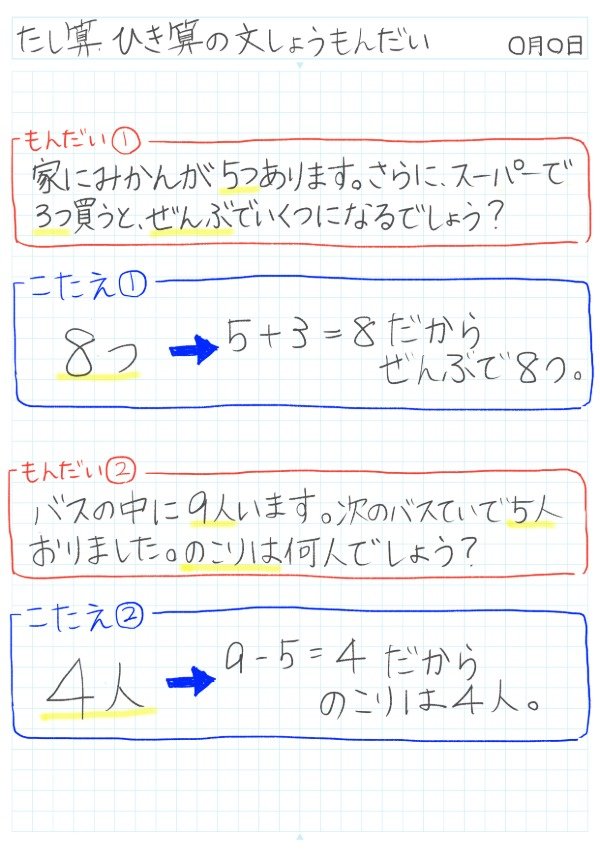 たし算 ひき算の文しょうもんだい 〇月〇日
もんだい①
家にみかんが5つあります。さらに、スーパーで
3つ買うと、ぜんぶでいくつになるでしょう?
こたえ①
8つ ➡ 5+3=8だから
ぜんぶで8つ。
もんだい②
バスの中に9人います。次のバスていで5人
おりました。のこりは何人でしょう?
こたえ②
4人 ➡ 9-5=4 だから
のこりは4人。